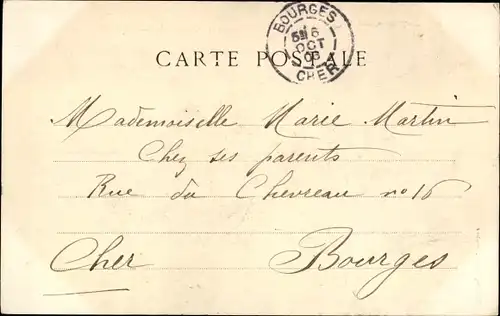 BOURGES
5E 6
OCT
03
CHER
CARTE POSTALE
Mademoiselle Marie Martin
Chez ses parents
Rue du Chevreau no 16
Cher Bourges